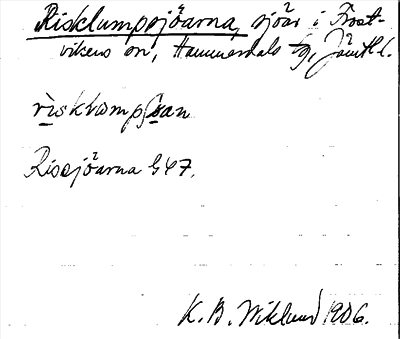 Risklumpsjöarna, sjöar i Frost-
vikens sn, Hammerdals tg, Jämtl l.
rìsklɯmpʃɵan
Rissjöarna G47.
K. B. Wiklund 1906.